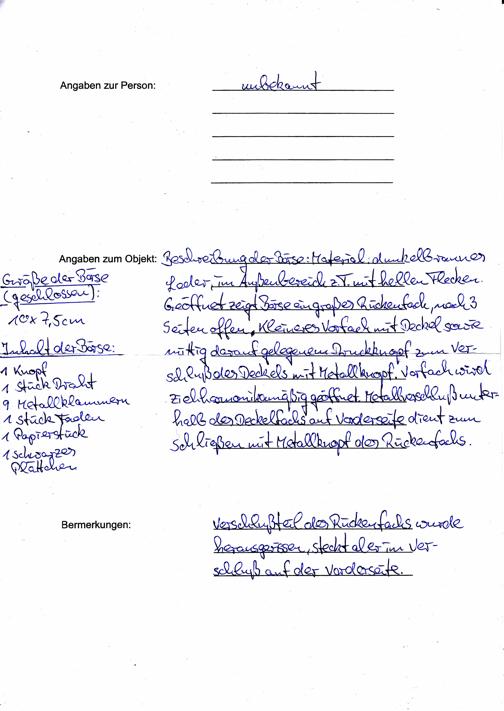 Angaben zur Person: unbekannt
Angaben zum Objekt: Beschreibung der Börse: Material: dunkelbraunes
Leder, im Außenbereich z.T. mit hellen Flecken.
Geöffnet zeigt Börse ein großes Rückenfach, nach 3
Seiten offen. Kleineres Vorfach mit Deckel sowie
mittig darauf gelegenem Druckknopf zum Ver-
schluß des Deckels mit Metallknopf. Vorfach wird
zieharmonikamäßig geöffnet Metallverschluß unter-
halb des Deckelfachs auf Vorderseite dient zum
Schließen mit Metallknopf des Rückenfachs.
Größe der Börse
(geschlossen):
10 x 7,5cm
Inhalt der Börse:
1 Knopf
1 Stück Draht
9 Metallklammern
1 Stück Faden
1 Papierstück
1 schwarzes
Plättchen
Bermerkungen: Verschlußteil des Rückenfachs wurde
herausgerissen, steckt aber im Ver-
schluß auf der Vorderseite.